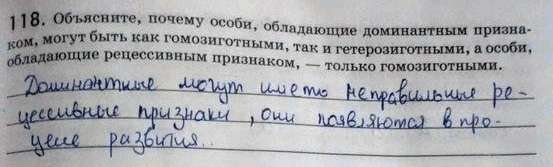 118. Объясните, почему особи, обладающие доминантным призна-
ком, могут быть как гомозиготными, так и гетерозиготными, а особи,
обладающие рецессивным признаком, — только гомозиготными.
Доминантные могут иметь неправильные ре-
цессивные признаки, они появляются в про-
цеше развития..